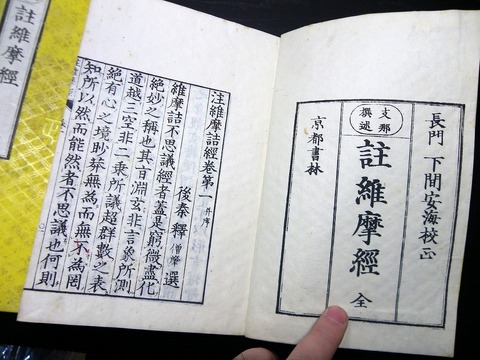 長門 下間安海校正
支那
撰述
註維摩經 全
京都書林
注維摩詰經卷第一 并序
後秦 釋 僧肇 選
維摩詰不思議經者蓋是窮微盡化
絶妙之稱也其旨淵玄非言象所測
道越三空非二乘所議超群數之表
絶有心之境眇莽無為而無不為罔
知所以然而能然者不思議也何則
註維摩經